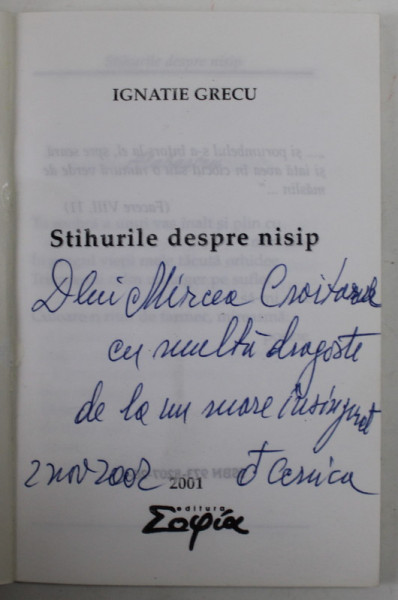 IGNATIE GRECU
Stihurile despre nisip
Dlui Mircea Croitoru
cu multă dragoste
de la un mare însingurat
2 nov 2002 2001 Cernica
editura
Σοφία